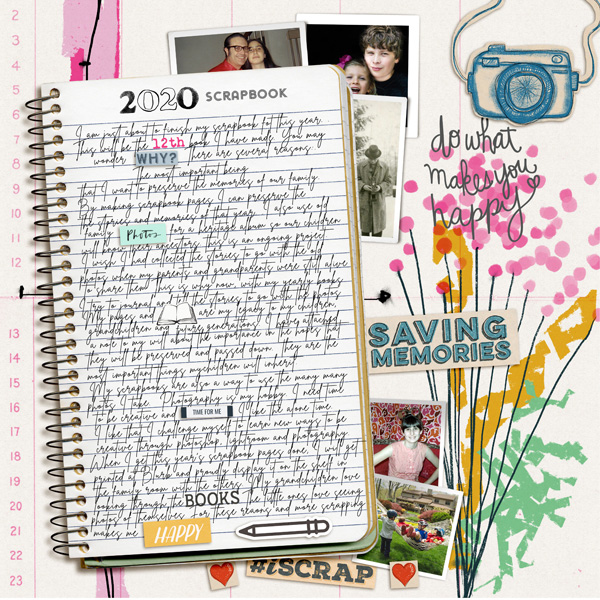 2
3
4
5
6
7
8
9
10
11
12
13
14
15
16
17
18
19
20
21
22
23
2020 SCRAPBOOK
I am just about to finish my scrapbook for this year.
This will be the 12th book I have made. You may
wonder WHY? there are several reasons
the most important being
that I want to preserve the memories of our family.
By making scrapbook pages I can preserve the
the stories and memories of that year. I also use old
family Photos for a heritage album so our children
will know their ancestors. this is an ongoing project.
I wish I had collected the stories to go with the old
photos when my parents and grandparents were still alive
to share them. this is why now with my yearly books
I try to journal and tell the stories to go with the photos
My pages and are my legacy to my children
grandchildren and future generations. I have attached
a note to my will about the importance in the hopes that
they will be preserved and passed down. they are the
most important things my children will inherit.
My scrapbooks are also a way to use the many many
photos I take. Photography is my hobby. I need time
to be creative and TIME FOR ME I like the alone time.
I like that I challenge myself to learn new ways to be
creative through photoshop, lightroom and photography.
When I get this year's scrapbook pages done, I will get
printed at Blurb and proudly display it on the shelf in
the family room with the others. My grandchildren love
looking through the BOOKS the little ones love seeing
photos of themselves. for these reasons and more scrapping
makes me HAPPY
do what
makes you
happy
SAVING
MEMORIES
#iSCRAP